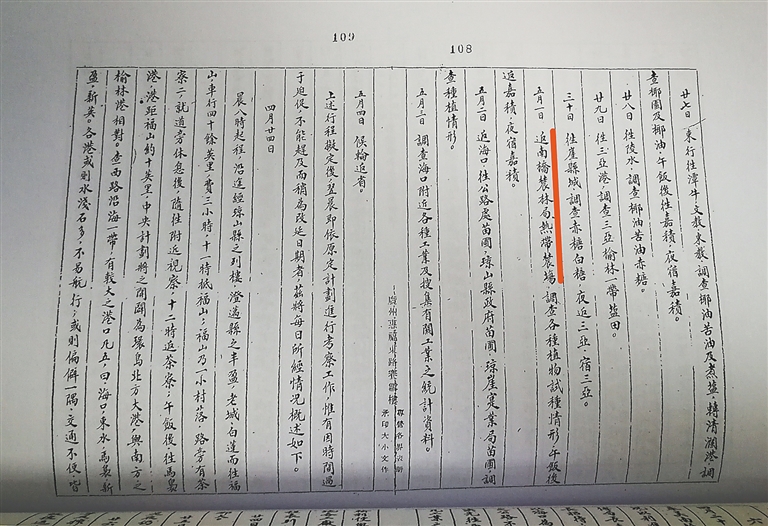 109
108
廿七日 東行往潭牛文教東教調查椰油苦油及煮鹽，轉清瀾港調
查椰園及椰油，午飯後往嘉積，夜宿嘉積。
廿八日 往陵水，調查椰油苦油赤糖。
廿九日 往三亞港，調查三亞榆林一帶鹽田。
三十日 往崖縣城，調查赤糖白糖，夜返三亞，宿三亞。
五月一日 返南橋農林局熱帶農場，調查各種植物試種情形，午飯後
返嘉積，夜宿嘉積。
五月二日 返海口，往公路處苗圃，瓊山縣政府苗圃，瓊崖實業局苗圃，調
查種植情形。
五月三日 調查海口附近各種工業及搜集有關工業之統計資料。
廣州惠福東路
專營各界
承印大小文件
五月四日 候輪返省。
上述行程擬定後，翌晨即依原定計劃進行考察工作，惟有因時間過
于迫促不能趕及而稍為改延日期者，茲將每日所經情況概述如下。
四月廿四日
晨八時起程，沿途經瓊山縣之列樓，澄邁縣之丰盈，老城，白蓮而往福
山，車行四十餘英里，費三小時，十一時抵福山；福山乃一小村落，路旁有茶
寮二，就道旁休息後，隨往附近視察，十二時返茶寮；午飯後往馬裊
港，港距福山約十英里，中央計劃將之開闢為環島北方大港，與南方之
榆林港相對。查西路沿海一帶，有較大之港口凡五，曰：海口，東水，馬裊，新
盈，新英。各港或則水淺石多，不易航行；或則偏僻一隅，交通不便，皆